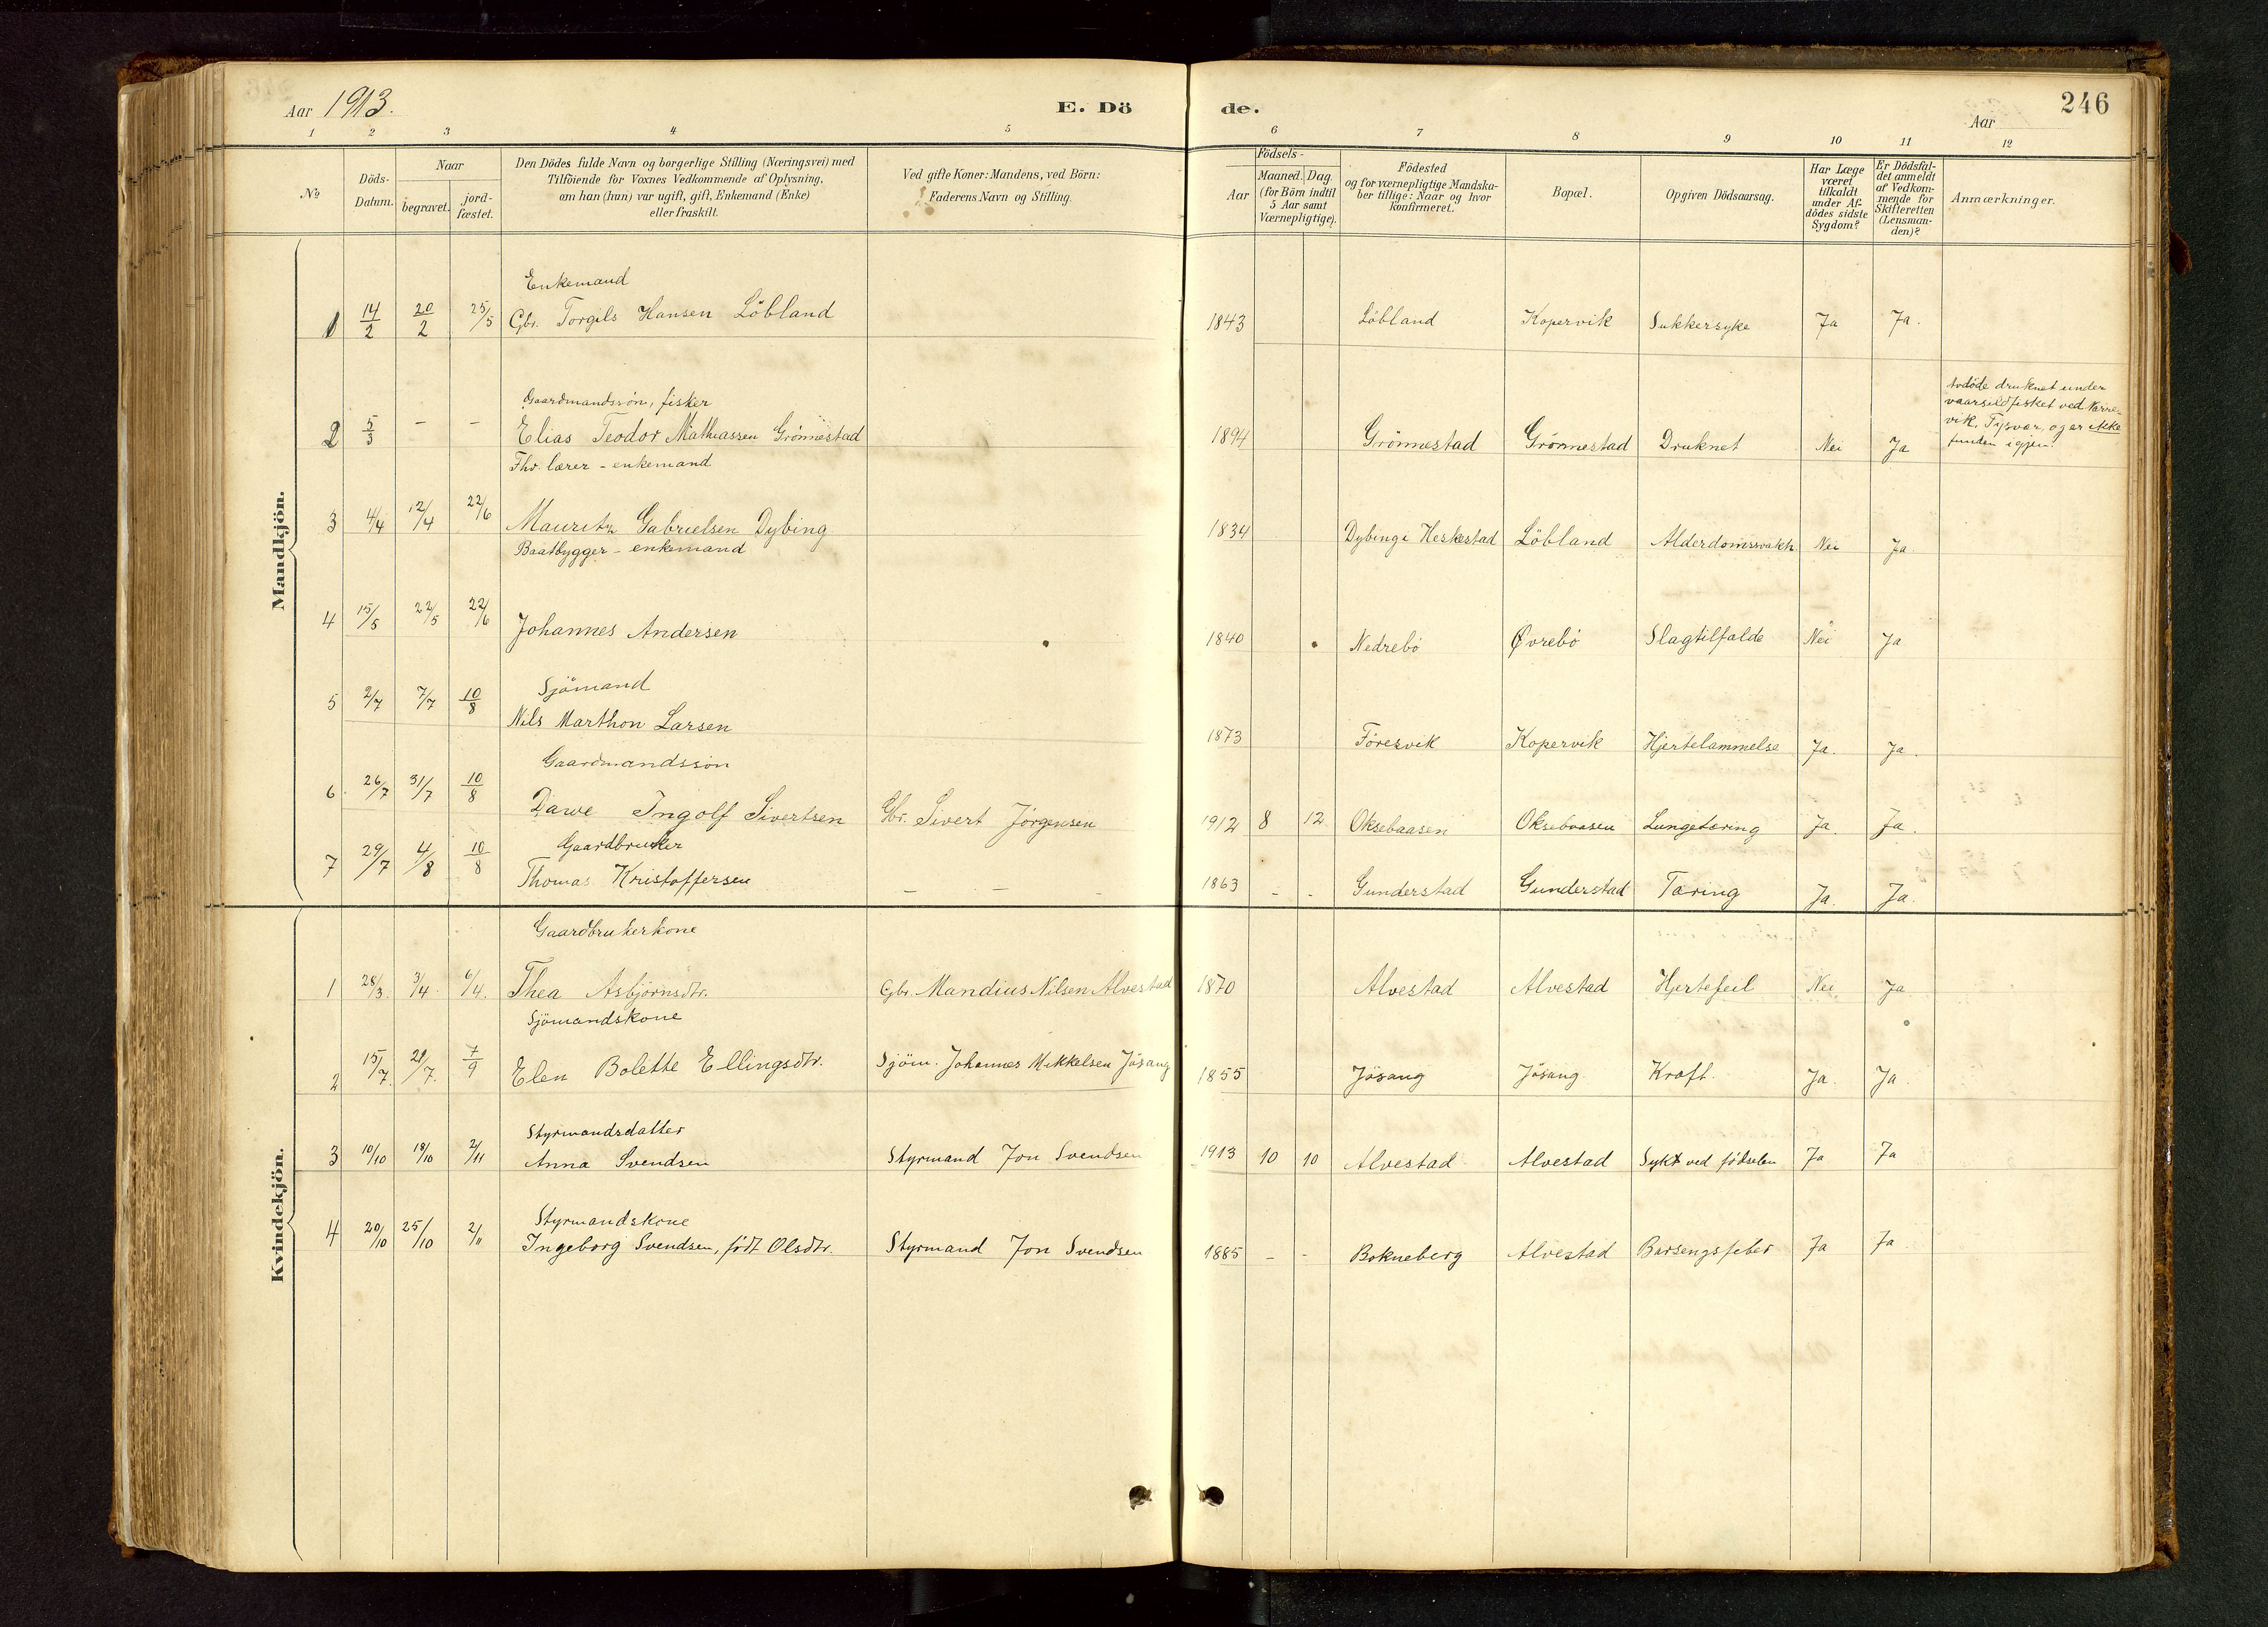 Aar 1913.
E. Döde.
246
Aar
1 2 3 4 5 6 7 8 9 10 11 12
No
Döds-Datum.
Naar
begravet.
jord-fæstet.
Den Dödes fulde Navn og borgerlige Stilling (Næringsvei) med
Tilföiende for Voxnes Vedkommende af Oplysning,
om han (hun) var ugift, gift, Enkemand (Enke)
eller fraskilt.
Ved gifte Koner: Mandens, ved Börn:
Faderens Navn og Stilling.
Födsels-
Aar
Maaned. Dag.
(for Börn indtil
5 Aar samt
Værnepligtige).
Födested
og for værnepligtige Mandska-
ber tillige: Naar og hvor
konfirmeret.
Bopæl.
Opgiven Dödsaarsag.
Har Læge
været
tilkaldt
under Af-
dödes sidste
Sygdom?
Er Dödsfal-
det anmeldt
af Vedkom-
mende for
Skifteretten
(Lensman-
den)?
Anmærkninger.
Mandkjön.
Enkemand
1 14/2 20/2 25/5 Gbr. Torgils Hansen Löbland 1843 Löbland Kopervik Sukkersyke Ja Ja.
Gaardmandssön, fisker
2 5/3 - - Elias Teodor Mathiassen Grönnestad 1894 Grönnestad Grönnestad Druknet Nei Ja
Avdöde druknet under
vaarsildfisket ved Narre-
vik, Tysvær, og er ikke
funden igjen.
Fhv. lærer - enkemand
3 4/4 12/4 22/6 Mauritz Gabrielsen Dybing 1834 Dybing i Heskestad Löbland Alderdomssvakh. Nei Ja
Baatbygger - enkemand
4 15/5 22/5 22/6 Johannes Andersen 1840 Nedrebö Øvrebö Slagtilfælde Nei Ja
Sjömand
5 2/7 7/7 10/8 Nils Marthon Larsen 1873 Föresvik Kopervik Hjertelammelse Ja. Ja.
Gaardmandssön
6 26/7 31/7 10/8 Dawe Ingolf Sivertsen Gbr. Sivert Jörgensen 1912 8 12 Oksebaasen Oksebaasen Lungetæring Ja. Ja.
Gaardbruker
7 29/7 4/8 10/8 Thomas Kristoffersen - - - 1863 - - Gunderstad Gunderstad Tæring Ja. Ja.
Kvindekjön.
Gaardbrukerkone
1 28/3. 3/4. 6/4. Thea Asbjörnsdtr. Gbr. Mandius Nilsen Alvestad 1870 Alvestad Alvestad Hjertefeil Nei Ja
Sjömandskone
2 15/7. 21/7. 7/9 Elen Bolette Ellingsdtr. Sjöm. Johannes Mikkelsen Jösang 1855 Jösang Jösang Kræft. Ja. Ja.
Styrmandsdatter
3 10/10 18/10 2/11 Anna Svendsen Styrmand Jon Svendsen 1913 10 10 Alvestad Alvestad Sykt ved födselen Ja Ja
Styrmandskone
4 20/10 25/10 2/11 Ingeborg Svendsen, födt Olsdtr. Styrmand Jon Svendsen 1885 - - Bokneberg Alvestad Barsengsfeber Ja Ja